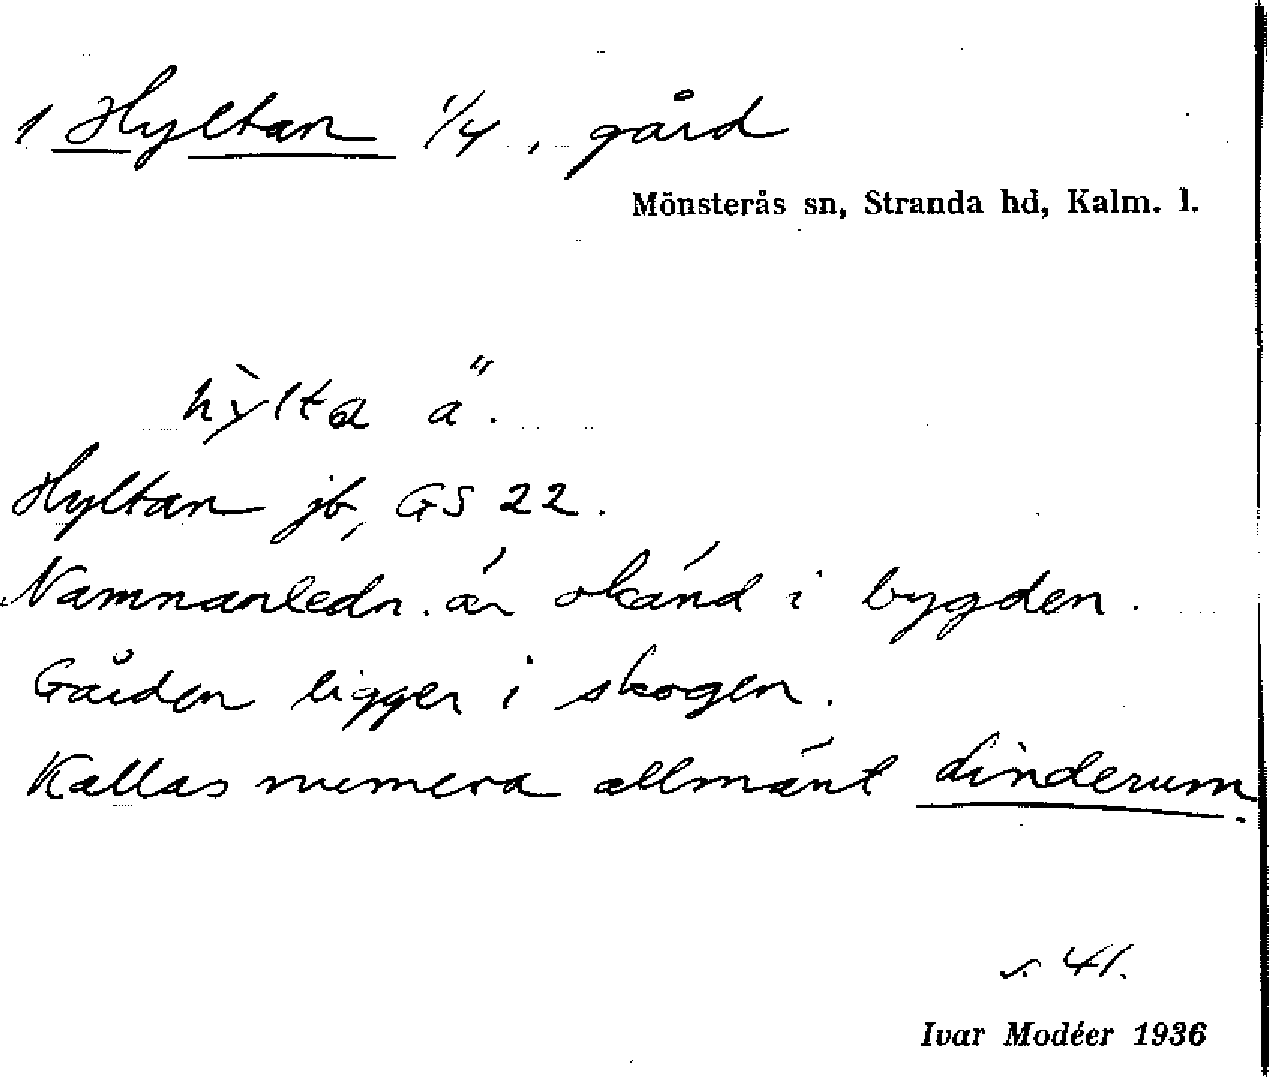 1 Hyltan 1/4, gård
Mönsterås sn, Stranda hd, Kalm. l.
hỳlta ä".
Hyltan jb, GS 22.
Namnanledn. är okänd i bygden.
Gården ligger i skogen.
Kallas numera allmänt Linderum.
s. 41.
Ivar Modéer 1936